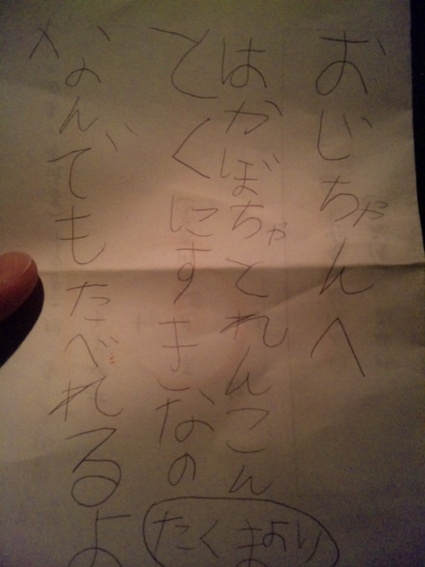 おじちゃんへ
なんでもたべれるよ
とくにすきなの
はかぼちゃとれんこん
たくまより